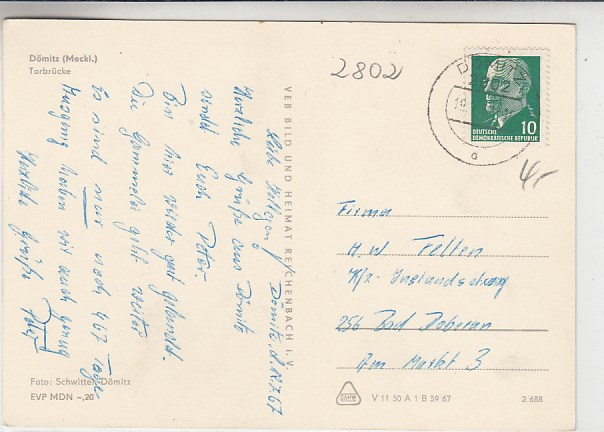 Dömitz (Meckl.)
Torbrücke
2802
Dömitz, d. 19.7.67
Liebe Kollegen!
Herzliche Grüße aus Dömitz
sendet Euch Peter.
Bin hier wieder gut gelandet.
Die Gammelei geht weiter
Es sind nur noch 467 Tage
haben wir auch genug
Herzliche Grüße Peter
VEB BILD UND HEIMAT REICHENBACH I. V.
2802
10
DEUTSCHE
DEMOKRATISCHE REPUBLIK
a
4,-
Firma
H. W. Felten
Kfz-Instandsetzung
256 Bad Doberan
Am Markt 3
Foto: Schwitter, Dömitz
EVP MDN -,20
V 11 50 A 1 B 59/67
2/688